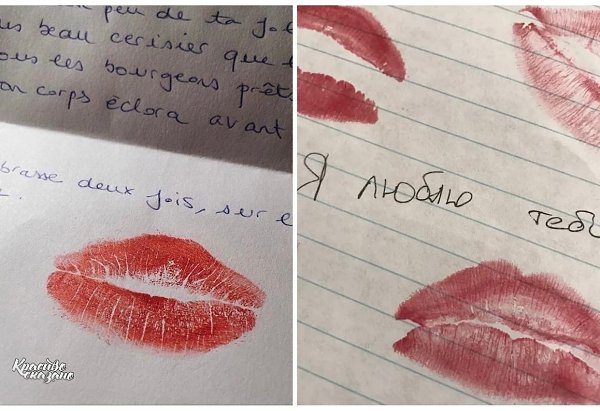 peu de ta joi
us beau cerisier que l
ous les bourgeons prêts
on corps éclora avant
brasse deux fois, sur
Красиво
сказано
Я люблю теб